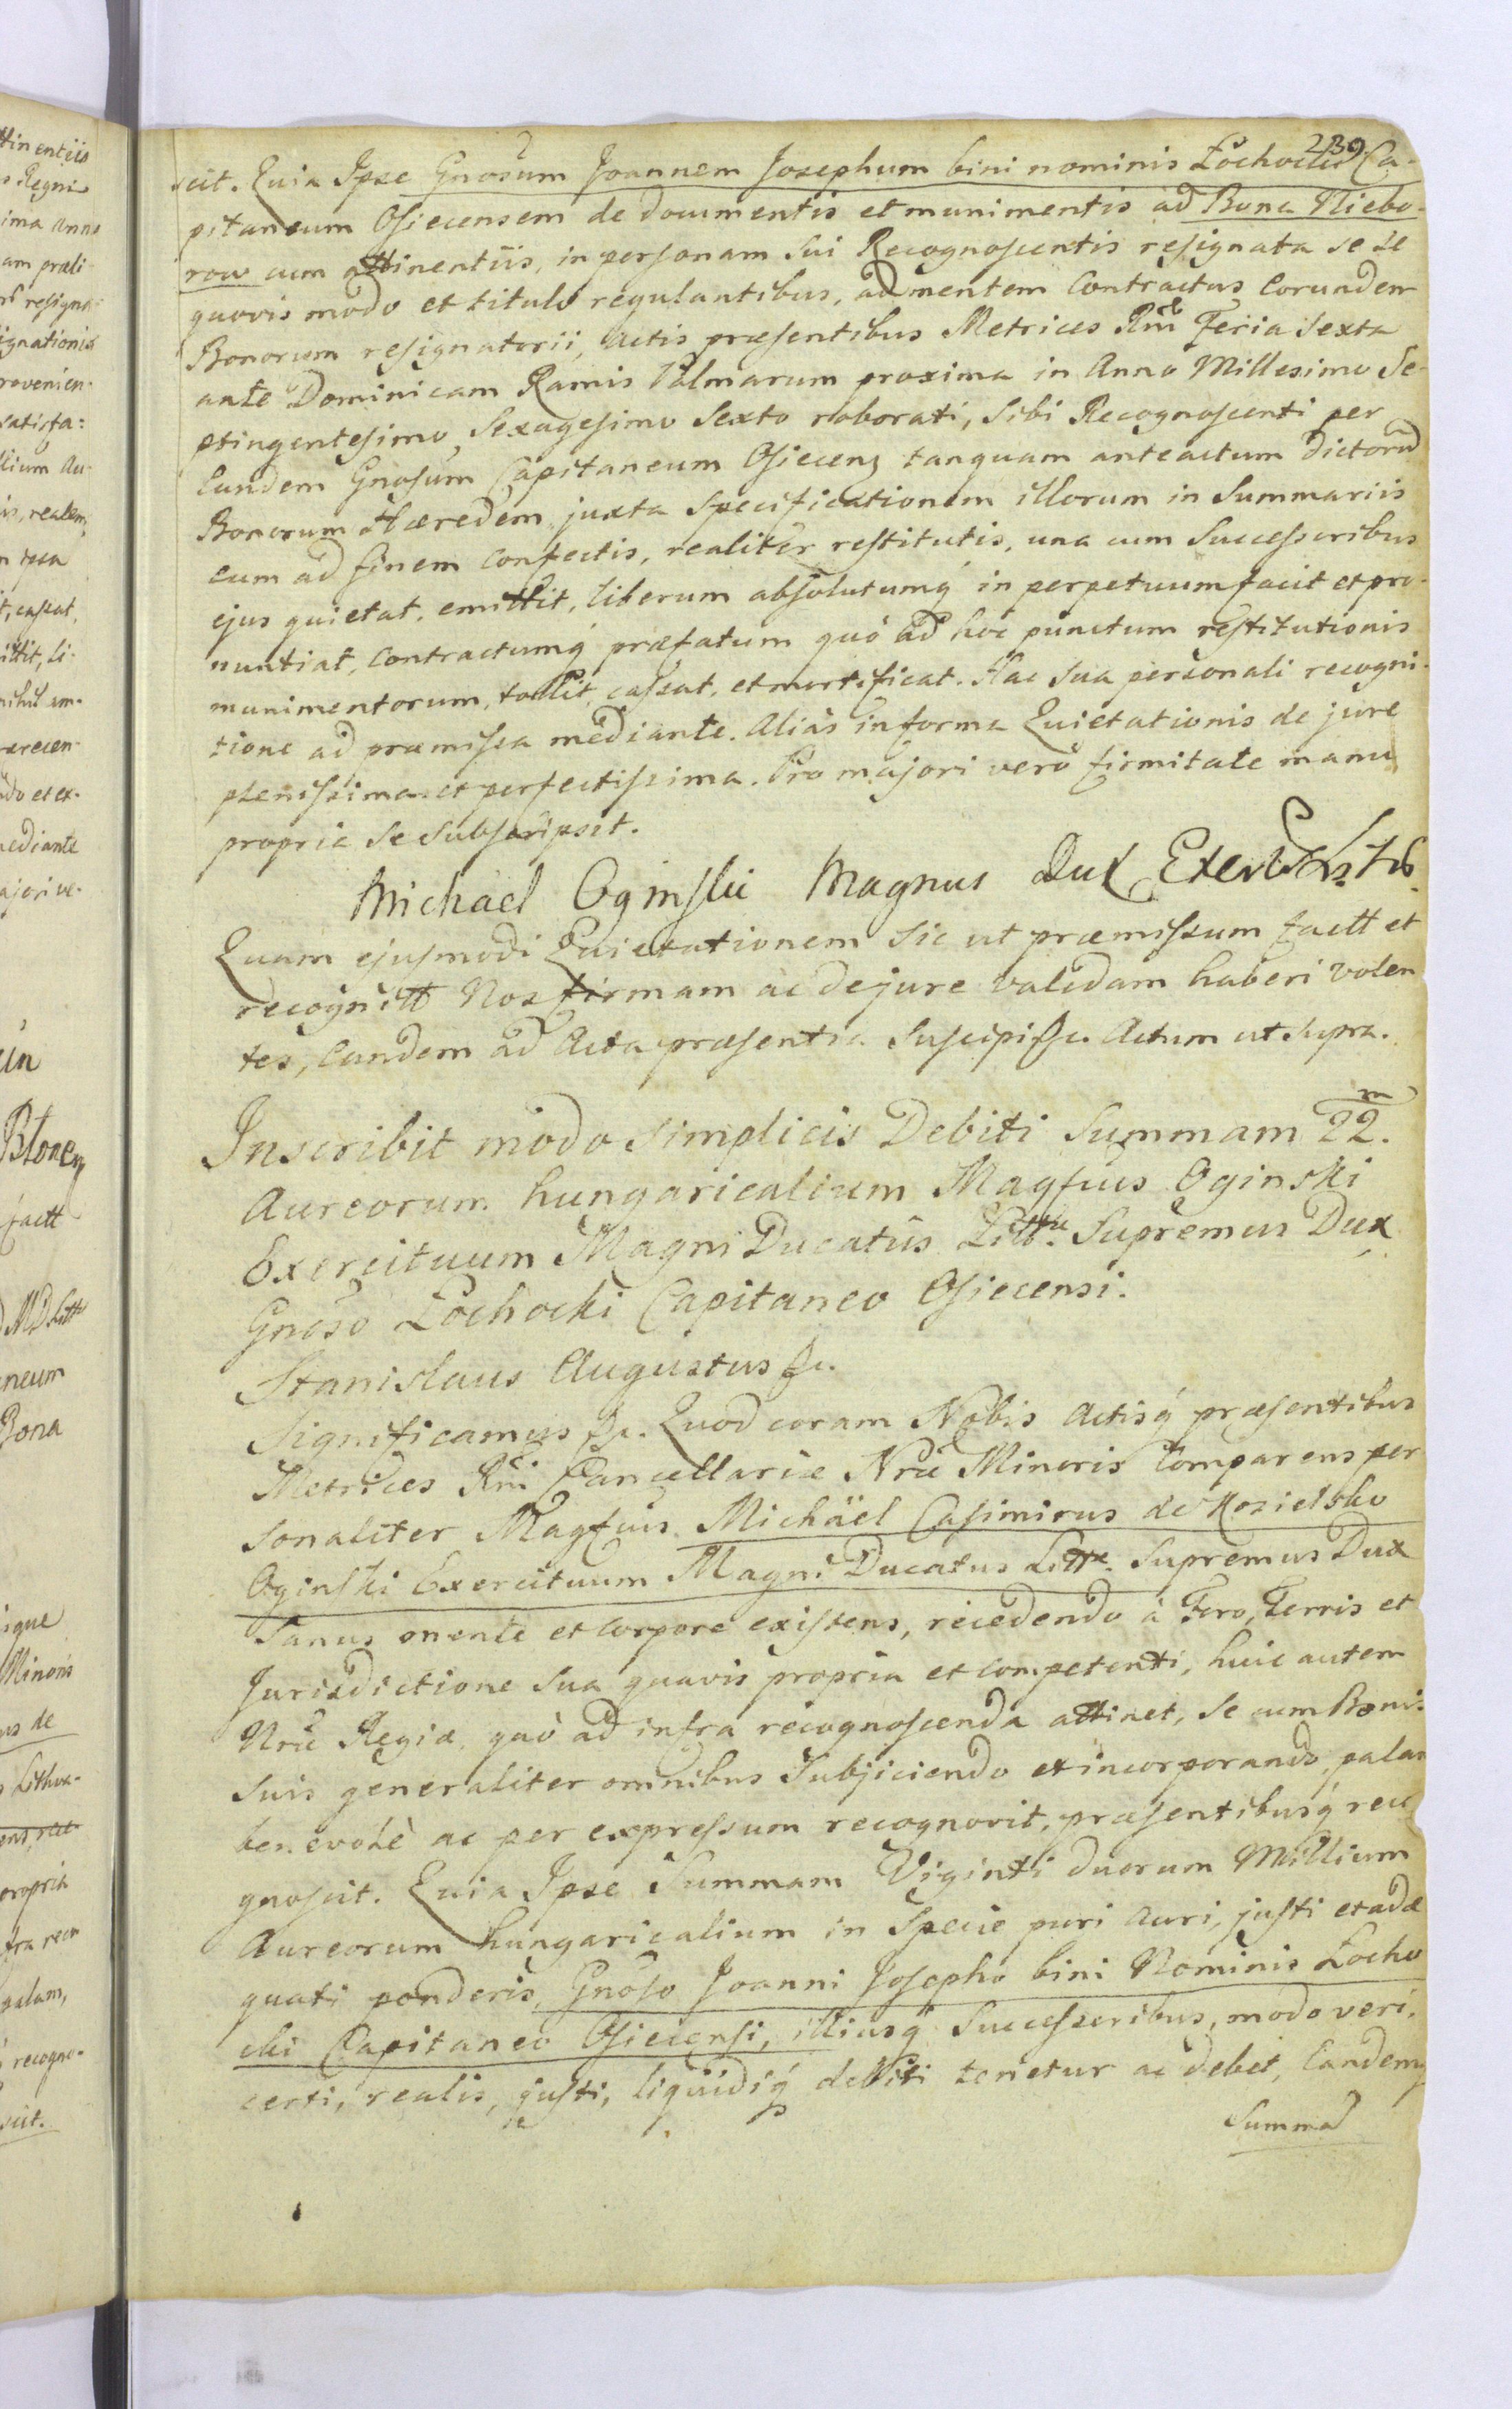 239.
scit. Quia Ipse Gnosum Joannem Josephum bini nominis Łochocki Ca-
pitaneum Osiecensem de documentis et munimentis ad Bona Niebo-
row cum attinentiis, in personam sui Recognoscentis resignata se se
quovis modo et titulo regulantibus, ad mentem Contractus Eorundem
Bonorum resignatorii, Actis præsentibus Metrices Rni Feria Sexta
ante Dominicam Ramis Palmarum proxima in Anno Millesimo Se-
ptingentesimo Sexagesimo Sexto roborati, sibi Recognoscenti per
Eundem Gnosum Capitaneum Osiecens tanquam anteactum dictorũ
Bonorum Hæredem, juxta Specificationem illorum in Summariis
eum ad finem confectis, realiter restitutis, una cum Successoribus
ejus quietat, emittit, liberum absolutumq́ in perpetuum facit et pro-
nuntiat, Contractumq́ præfatum quò ad hoc punctum restitutionis
munimentorum, tollit, cassat, et mortificat. Hac sua personali recogni-
tione ad præmissa mediante. Aliàs in forma Quietationis de jure
plenissima et perfectissima. Pro majori verò firmitate manu
propria se subscripsit.
Michäel Oginski Magnus Dux
Quam ejusmodi Quietationem sic ut præmissum factt et
recognitt Nos firmam ac de jure validam haberi volen
tes, Eandem ad Acta præsentia suscipi &c. Actum ut supra.
Inscribit modo simplicis Debiti Summam 22.m
Aureorum hungaricalium Magfcus Oginski
Exercituum Magni Ducatûs Litt. Supremus Dux
Gnoso Łochocki Capitaneo Osiecensi.
Stanislaus Augustus &c.
Significamus &c. Quod coram Nobis Actisq́ præsentibus
Metrices Rni Cancellariæ Nræ Minoris Comparens per
sonaliter Magfcus Michäel Casimirus de Kozielsko
Oginski Exercituum Magni Ducatus Litt. Supremus Dux
Sanus mente et corpore existens, recedendo à Foro, Terris et
Jurisdictione sua quavis propria et competenti, huic autem
Nræ Regiæ, quò ad infra recognoscenda attinet, se cum Bonis
suis generaliter omnibus subjiciendo et incorporando, palam
benevolè ac per expressum recognovit, præsentibusq́ reco
gnoscit. Quia Ipse Summam Viginti duorum Millium
Aureorum hungaricalium in Specie puri Auri, justi et adæ
quati ponderis, Gnoso Joanni Josepho bini Nominis Łocho
cki Capitaneo Osiecensi, illiusq́ Successoribus, modo veri,
certi, realis, justi, liquidiq́ debiti tenetur ac debet, Eandemq́
Summã
ttinentiis
Regni
ima Anno
am præli-
resigna-
ignationis
rovenien-
satisfa:
lium Au-
is, realem,
ipsa
t, cassat,
ittit, li-
nihil am-
do et ex-
mediante
ajori ve-
Błonen
factt
MD Litt
neum
Bona
ique
Minoris
us de
Lithva-
propria
fra reco
palam,
recogno-
scit.